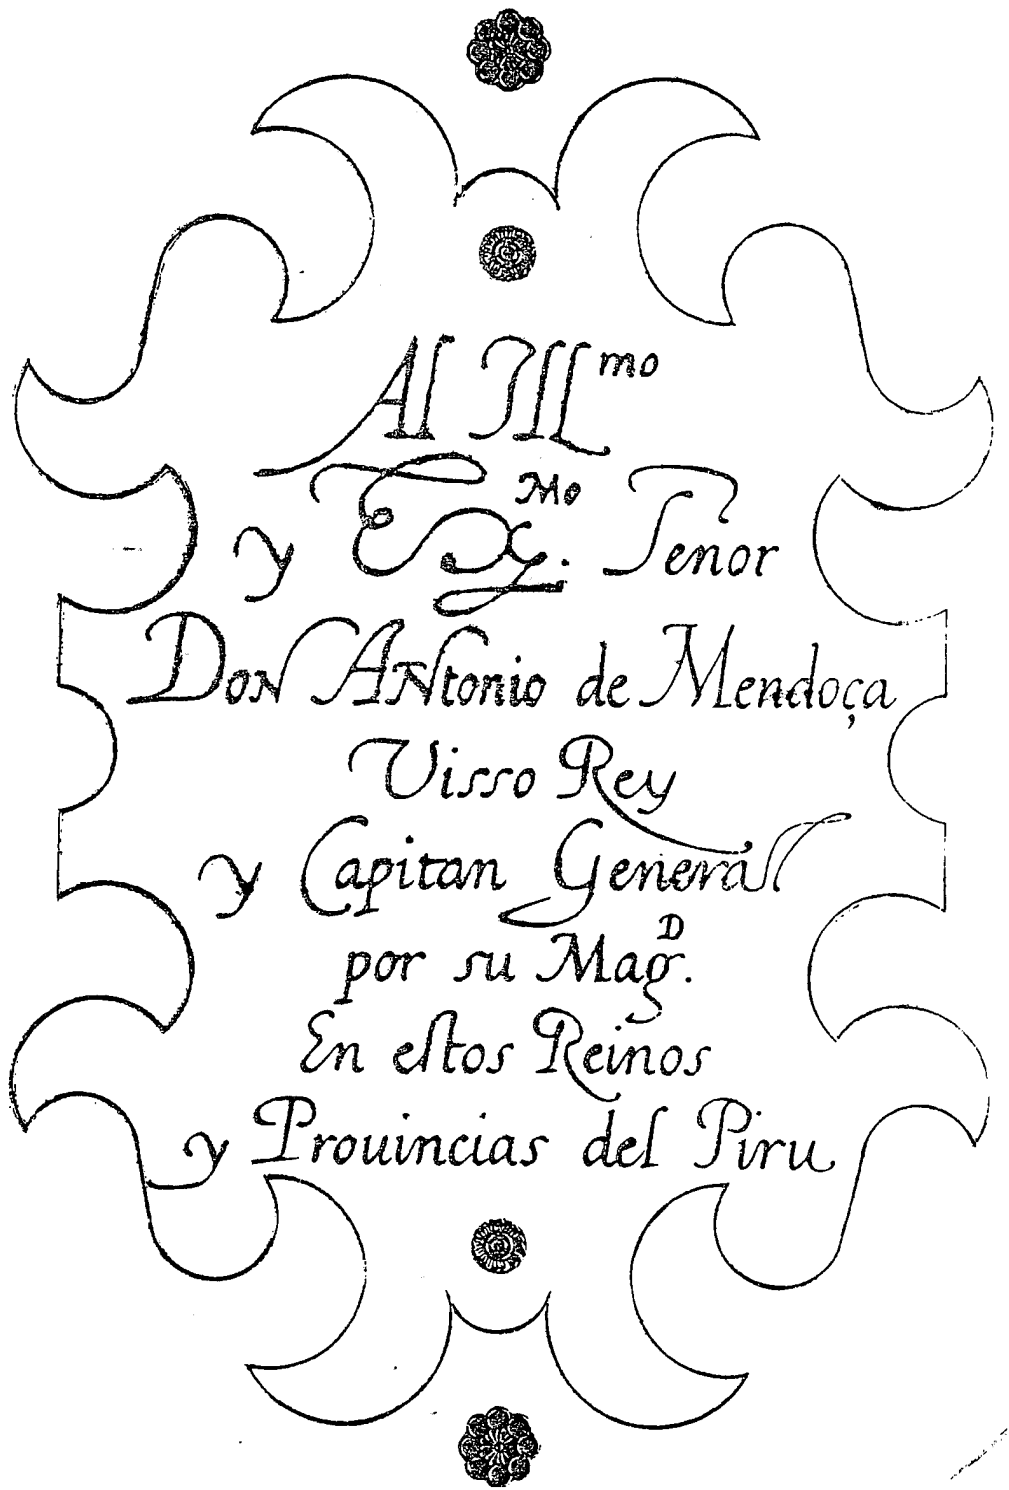 Al Ill.mo
y Ex.Mo Señor
Don Antonio de Mendoça
Visso Rey
y Capitan General
por su Mag.D
En estos Reinos
y Prouincias del Piru